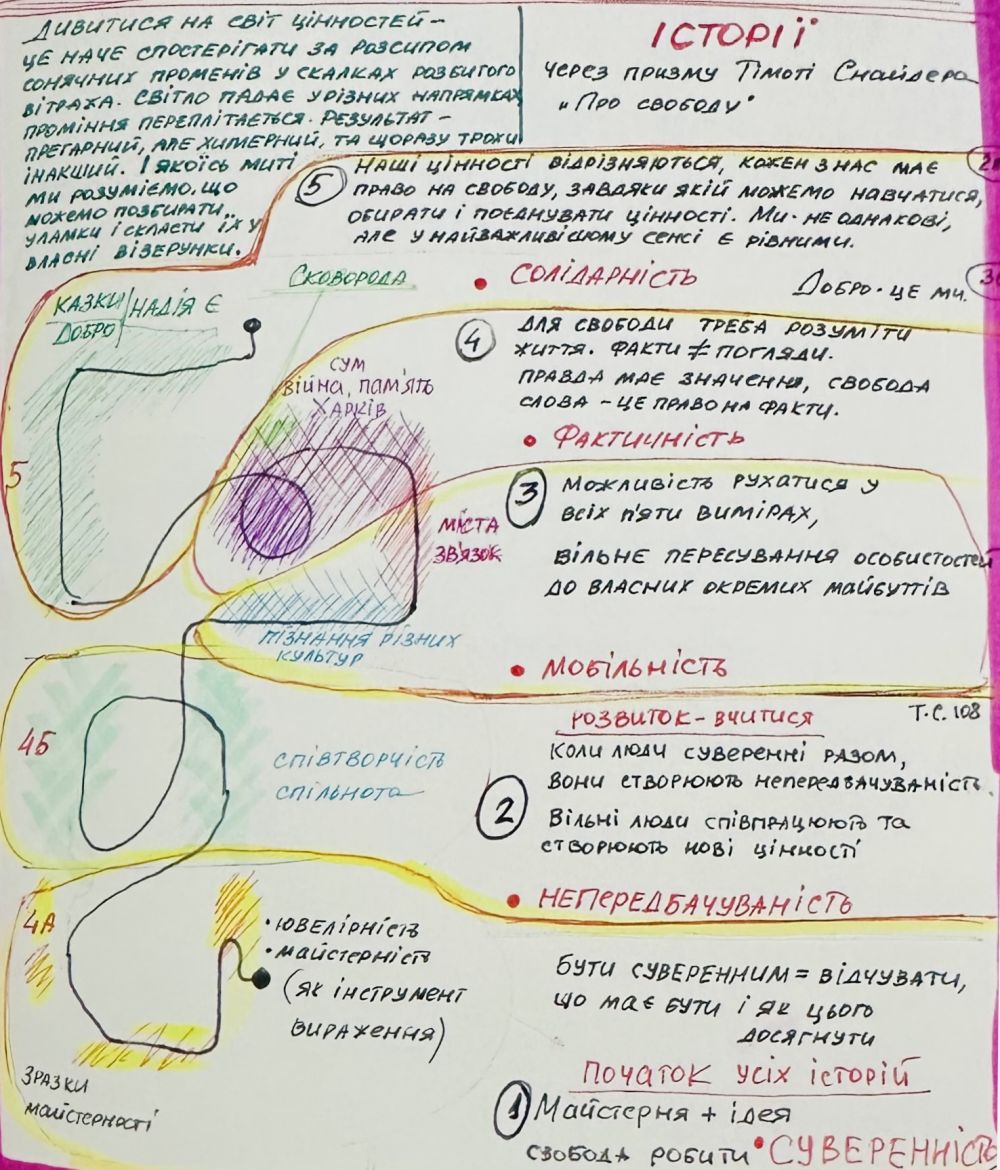 ДИВИТИСЯ НА СВІТ ЦІННОСТЕЙ –
ЦЕ НАЧЕ СПОСТЕРІГАТИ ЗА РОЗСИПОМ
СОНЯЧНИХ ПРОМЕНІВ У СКАЛКАХ РОЗБИТОГО
ВІТРАЖА. СВІТЛО ПАДАЄ У РІЗНИХ НАПРЯМКАХ
ПРОМІННЯ ПЕРЕПЛІТАЄТЬСЯ. РЕЗУЛЬТАТ –
ПРЕГАРНИЙ, АЛЕ ХИМЕРНИЙ, ТА ЩОРАЗУ ТРОХИ
ІНАКШИЙ. І ЯКОЇСЬ МИТІ
МИ РОЗУМІЄМО, ЩО
МОЖЕМО ПОЗБИРАТИ
УЛАМКИ І СКЛАСТИ ЇХ У
ВЛАСНІ ВІЗЕРУНКИ.
ІСТОРІЇ
ЧЕРЕЗ ПРИЗМУ Тімоті Снайдера
„Про свободу"
5 НАШІ ЦІННОСТІ ВІДРІЗНЯЮТЬСЯ, КОЖЕН З НАС МАЄ
ПРАВО НА СВОБОДУ, ЗАВДЯКИ ЯКІЙ МОЖЕМО НАВЧАТИСЯ,
ОБИРАТИ І ПОЄДНУВАТИ ЦІННОСТІ. МИ · НЕ ОДНАКОВІ,
АЛЕ У НАЙВАЖЛИВІШОМУ СЕНСІ Є РІВНИМИ.
• СОЛІДАРНІСТЬ
ДОБРО · ЦЕ МИ.
СКОВОРОДА
КАЗКИ НАДІЯ Є
ДОБРО
СУМ
ВІЙНА, ПАМ'ЯТЬ
ХАРКІВ
4 ДЛЯ СВОБОДИ ТРЕБА РОЗУМІТИ
ЖИТТЯ. ФАКТИ ≠ ПОГЛЯДИ.
ПРАВДА МАЄ ЗНАЧЕННЯ, СВОБОДА
СЛОВА – ЦЕ ПРАВО НА ФАКТИ.
• ФАКТИЧНІСТЬ
5
МІСТА
ЗВ'ЯЗОК
3 МОЖЛИВІСТЬ РУХАТИСЯ У
ВСІХ П'ЯТИ ВИМІРАХ,
ВІЛЬНЕ ПЕРЕСУВАННЯ ОСОБИСТОСТЕЙ
ДО ВЛАСНИХ ОКРЕМИХ МАЙБУТТІВ
ПІЗНАННЯ РІЗНИХ
КУЛЬТУР
• МОБІЛЬНІСТЬ
4Б
СПІВТВОРЧІСТЬ
СПІЛЬНОТА
РОЗВИТОК – ВЧИТИСЯ
Т.С. 108
2 КОЛИ ЛЮДИ СУВЕРЕННІ РАЗОМ,
ВОНИ СТВОРЮЮТЬ НЕПЕРЕДБАЧУВАНІСТЬ.
ВІЛЬНІ ЛЮДИ СПІВПРАЦЮЮТЬ ТА
СТВОРЮЮТЬ НОВІ ЦІННОСТІ
• НЕПЕРЕДБАЧУВАНІСТЬ
4А
• ЮВЕЛІРНІСТЬ
• МАЙСТЕРНІСТЬ
(ЯК ІНСТРУМЕНТ
ВИРАЖЕННЯ)
ЗРАЗКИ
МАЙСТЕРНОСТІ
БУТИ СУВЕРЕННИМ = ВІДЧУВАТИ,
ЩО МАЄ БУТИ І ЯК ЦЬОГО
ДОСЯГНУТИ
ПОЧАТОК УСІХ ІСТОРІЙ
1 Майстерня + ідея
СВОБОДА РОБИТИ • СУВЕРЕННІСТЬ